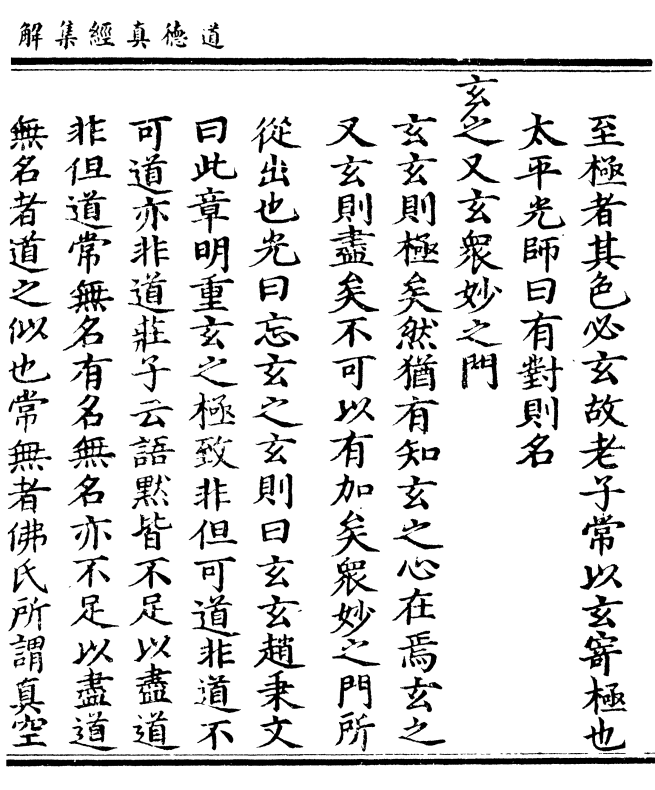 道德真經集解
至極者其色必玄故老子常以玄寄極也
太平光師曰有對則名
玄之又玄衆妙之門
玄玄則極矣然猶有知玄之心在焉玄之
又玄則盡矣不可以有加矣衆妙之門所
從出也光曰忘玄之玄則曰玄玄趙秉文
曰此章明重玄之極致非但可道非道不
可道亦非道莊子云語默皆不足以盡道
非但道常無名有名無名亦不足以盡道
無名者道之似也常無者佛氏所謂真空